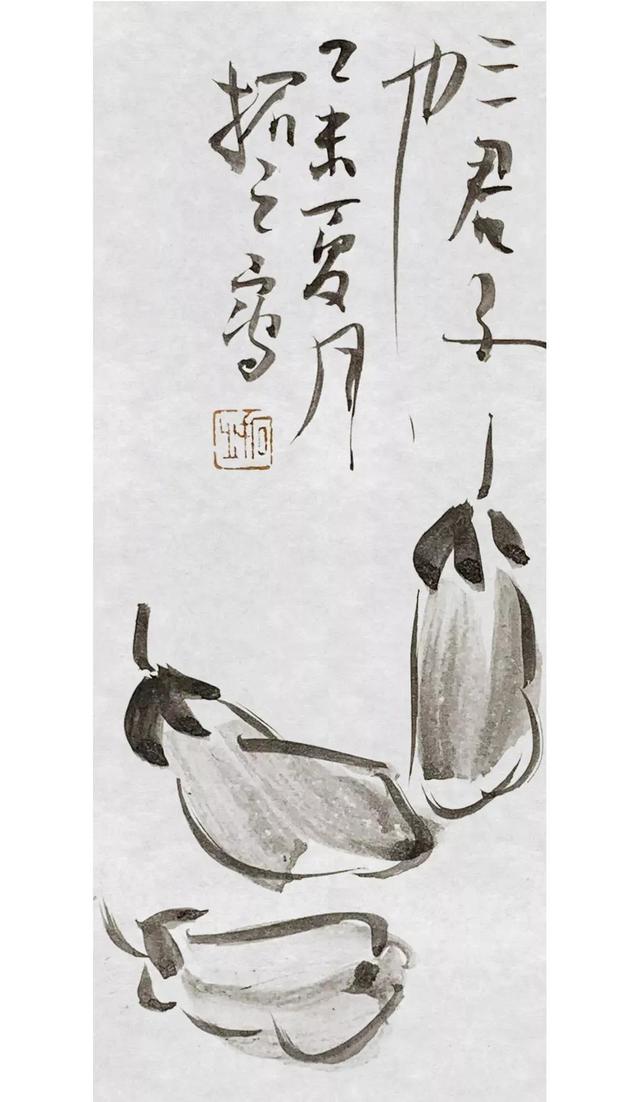 三君子
也
乙未夏月
拓之寫